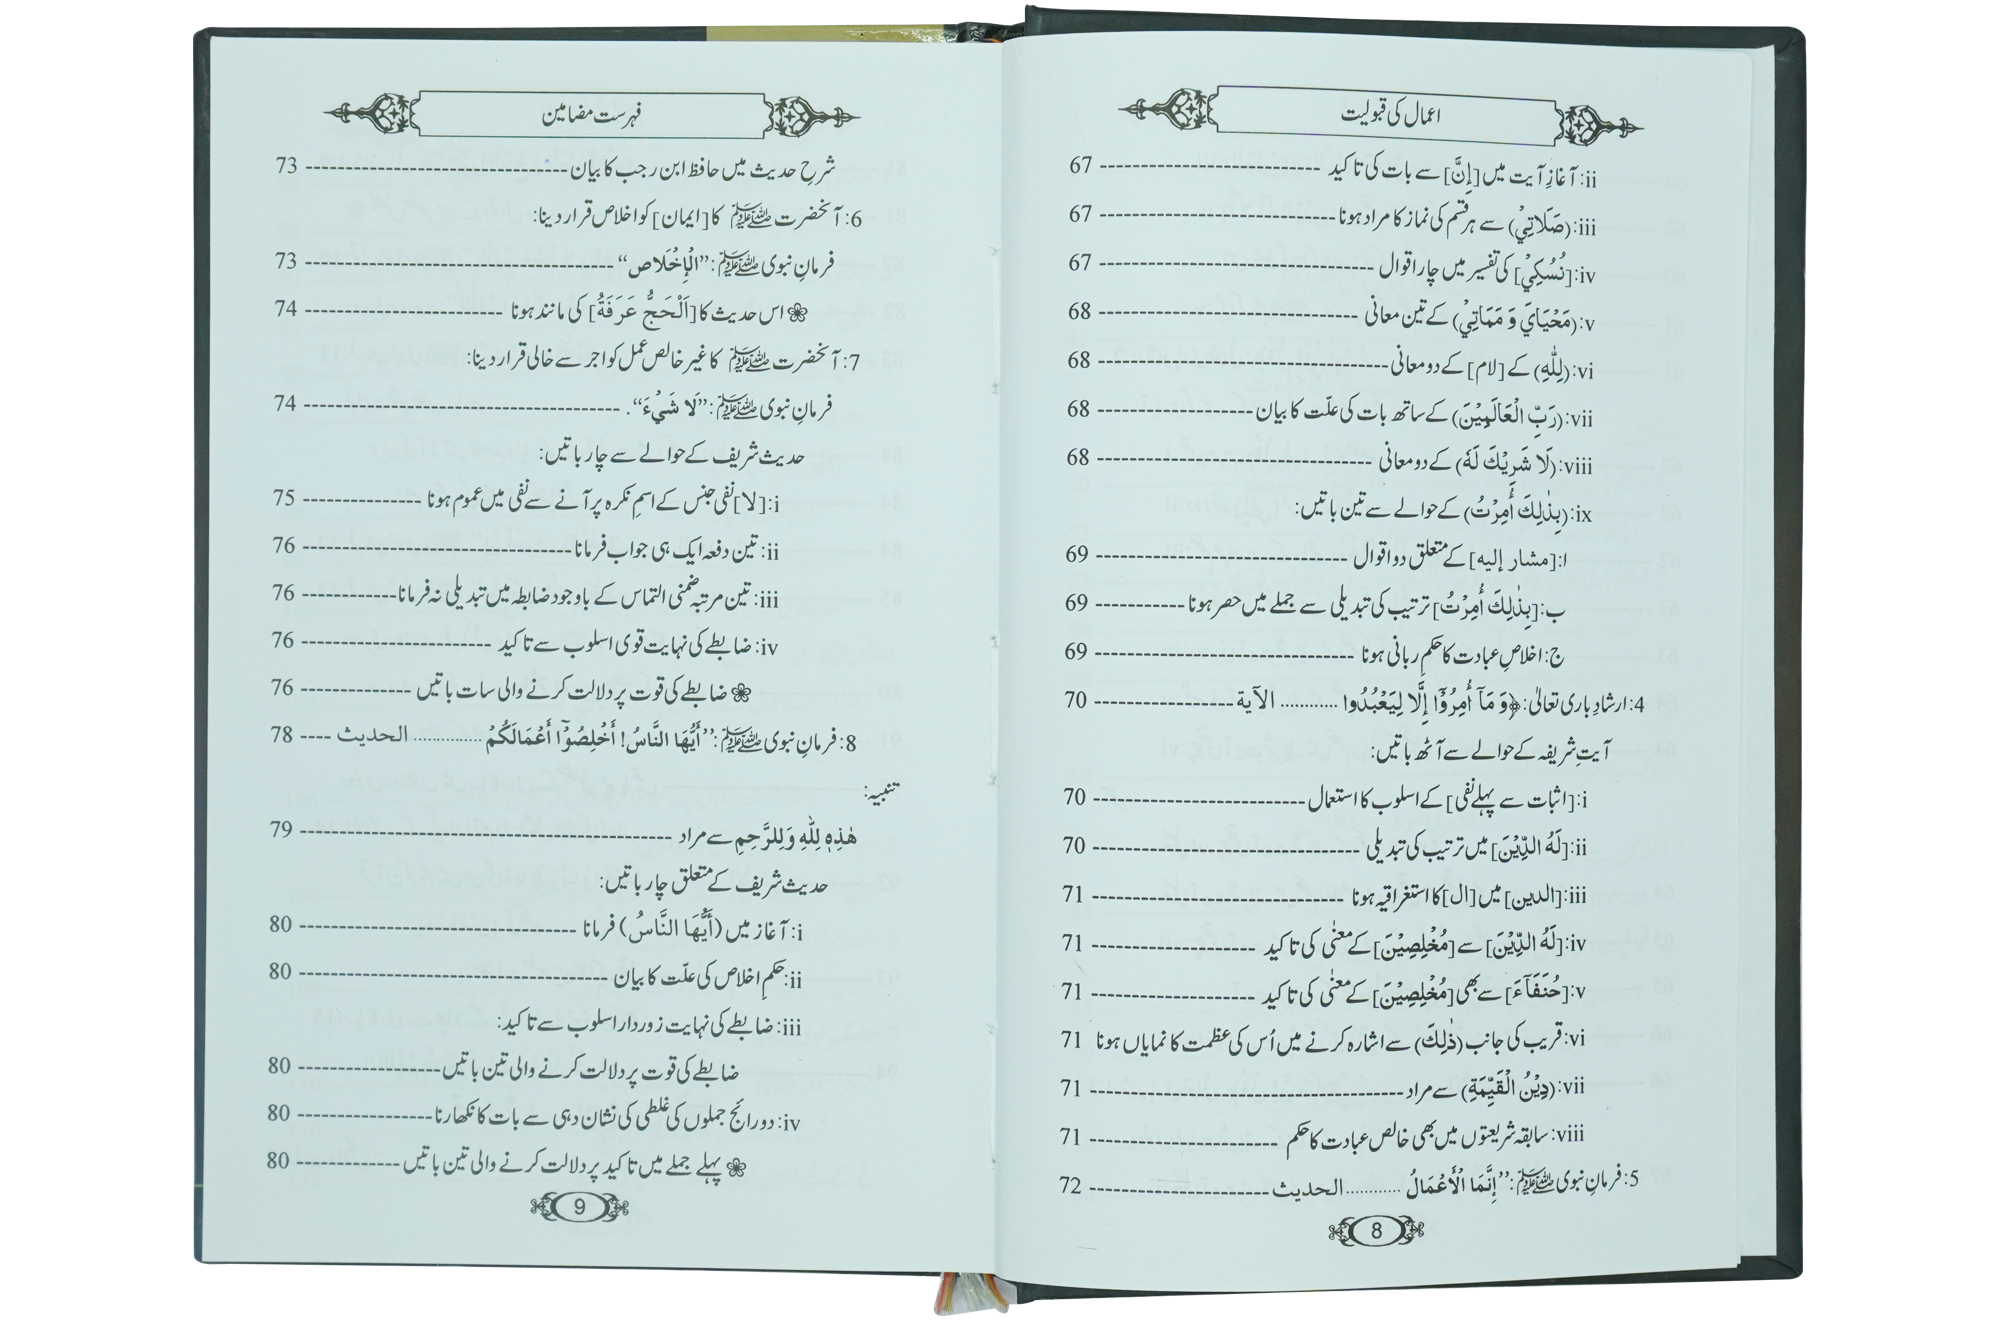 اعمال کی قبولیت
ii: آغازِ آیت میں [إِنَّ] سے بات کی تاکید ---------- 67
iii: (صَلَاتِيْ) سے ہر قسم کی نماز کا مراد ہونا ---------- 67
iv: [نُسُكِيْ] کی تفسیر میں چار اقوال ---------- 67
v: (مَحْيَايَ وَ مَمَاتِيْ) کے تین معانی ---------- 68
vi: (لِلّٰهِ) کے [لام] کے دو معانی ---------- 68
vii: (رَبِّ الْعَالَمِيْنَ) کے ساتھ بات کی علّت کا بیان ---------- 68
viii: (لَا شَرِيْكَ لَهُ) کے دو معانی ---------- 68
ix: (بِذٰلِكَ أُمِرْتُ) کے حوالے سے تین باتیں:
ا: [مشار إليه] کے متعلق دو اقوال ---------- 69
ب: [بِذٰلِكَ أُمِرْتُ] ترتیب کی تبدیلی سے جملے میں حصر ہونا ---------- 69
ج: اخلاصِ عبادت کا حکمِ ربانی ہونا ---------- 69
4: ارشادِ باری تعالیٰ: ﴿وَ مَآ أُمِرُوْٓا إِلَّا لِيَعْبُدُوا ............ الآية ---------- 70
آیتِ شریفہ کے حوالے سے آٹھ باتیں:
i: [اثبات سے پہلے نفی] کے اسلوب کا استعمال ---------- 70
ii: [لَهُ الدِّيْنَ] میں ترتیب کی تبدیلی ---------- 70
iii: [الدین] میں [ال] کا استغراقیہ ہونا ---------- 71
iv: [لَهُ الدِّيْنَ] سے [مُخْلِصِيْنَ] کے معنٰی کی تاکید ---------- 71
v: [حُنَفَآءَ] سے بھی [مُخْلِصِيْنَ] کے معنٰی کی تاکید ---------- 71
vi: قریب کی جانب (ذٰلِكَ) سے اشارہ کرنے میں اُس کی عظمت کا نمایاں ہونا 71
vii: (دِيْنُ الْقَيِّمَةِ) سے مراد ---------- 71
viii: سابقہ شریعتوں میں بھی خالص عبادت کا حکم ---------- 71
5: فرمانِ نبوی ﷺ: ’’إِنَّمَا الْأَعْمَالُ ............ الحديث ---------- 72
8
فہرست مضامین
شرحِ حدیث میں حافظ ابن رجب کا بیان ---------- 73
6: آنحضرت ﷺ کا [ایمان] کو اخلاص قرار دینا:
فرمانِ نبوی ﷺ: ’’الْإِخْلَاص‘‘ ---------- 73
❀ اس حدیث کا [اَلْحَجُّ عَرَفَةُ] کی مانند ہونا ---------- 74
7: آنحضرت ﷺ کا غیر خالص عمل کو اجر سے خالی قرار دینا:
فرمانِ نبوی ﷺ: ’’لَا شَيْءَ‘‘. ---------- 74
حدیث شریف کے حوالے سے چار باتیں:
i: [لا] نفی جنس کے اسمِ نکرہ پر آنے سے نفی میں عموم ہونا ---------- 75
ii: تین دفعہ ایک ہی جواب فرمانا ---------- 76
iii: تین مرتبہ ضمنی التماس کے باوجود ضابطہ میں تبدیلی نہ فرمانا ---------- 76
iv: ضابطے کی نہایت قوی اسلوب سے تاکید ---------- 76
❀ ضابطے کی قوت پر دلالت کرنے والی سات باتیں ---------- 76
8: فرمانِ نبوی ﷺ: ’’أَيُّهَا النَّاسُ! أَخْلِصُوْٓا أَعْمَالَكُمْ ............ الحديث ---- 78
تنبیہ:
هٰذِهٖ لِلّٰهِ وَلِلرَّحِمِ سے مراد ---------- 79
حدیث شریف کے متعلق چار باتیں:
i: آغاز میں (أَيُّهَا النَّاسُ) فرمانا ---------- 80
ii: حکمِ اخلاص کی علّت کا بیان ---------- 80
iii: ضابطے کی نہایت زور دار اسلوب سے تاکید:
ضابطے کی قوت پر دلالت کرنے والی تین باتیں ---------- 80
iv: دو رائج جملوں کی غلطی کی نشان دہی سے بات کا نکھارنا ---------- 80
❀ پہلے جملے میں تاکید پر دلالت کرنے والی تین باتیں ---------- 80
9